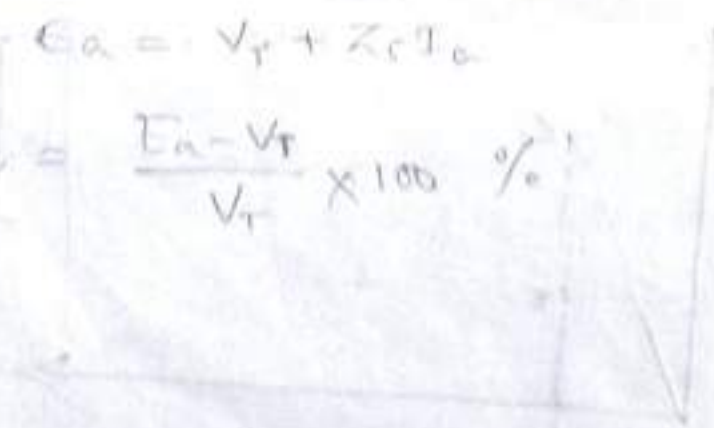 Ea = V_T + Z_s I_a
= (Ea - V_T) / V_T × 100 %